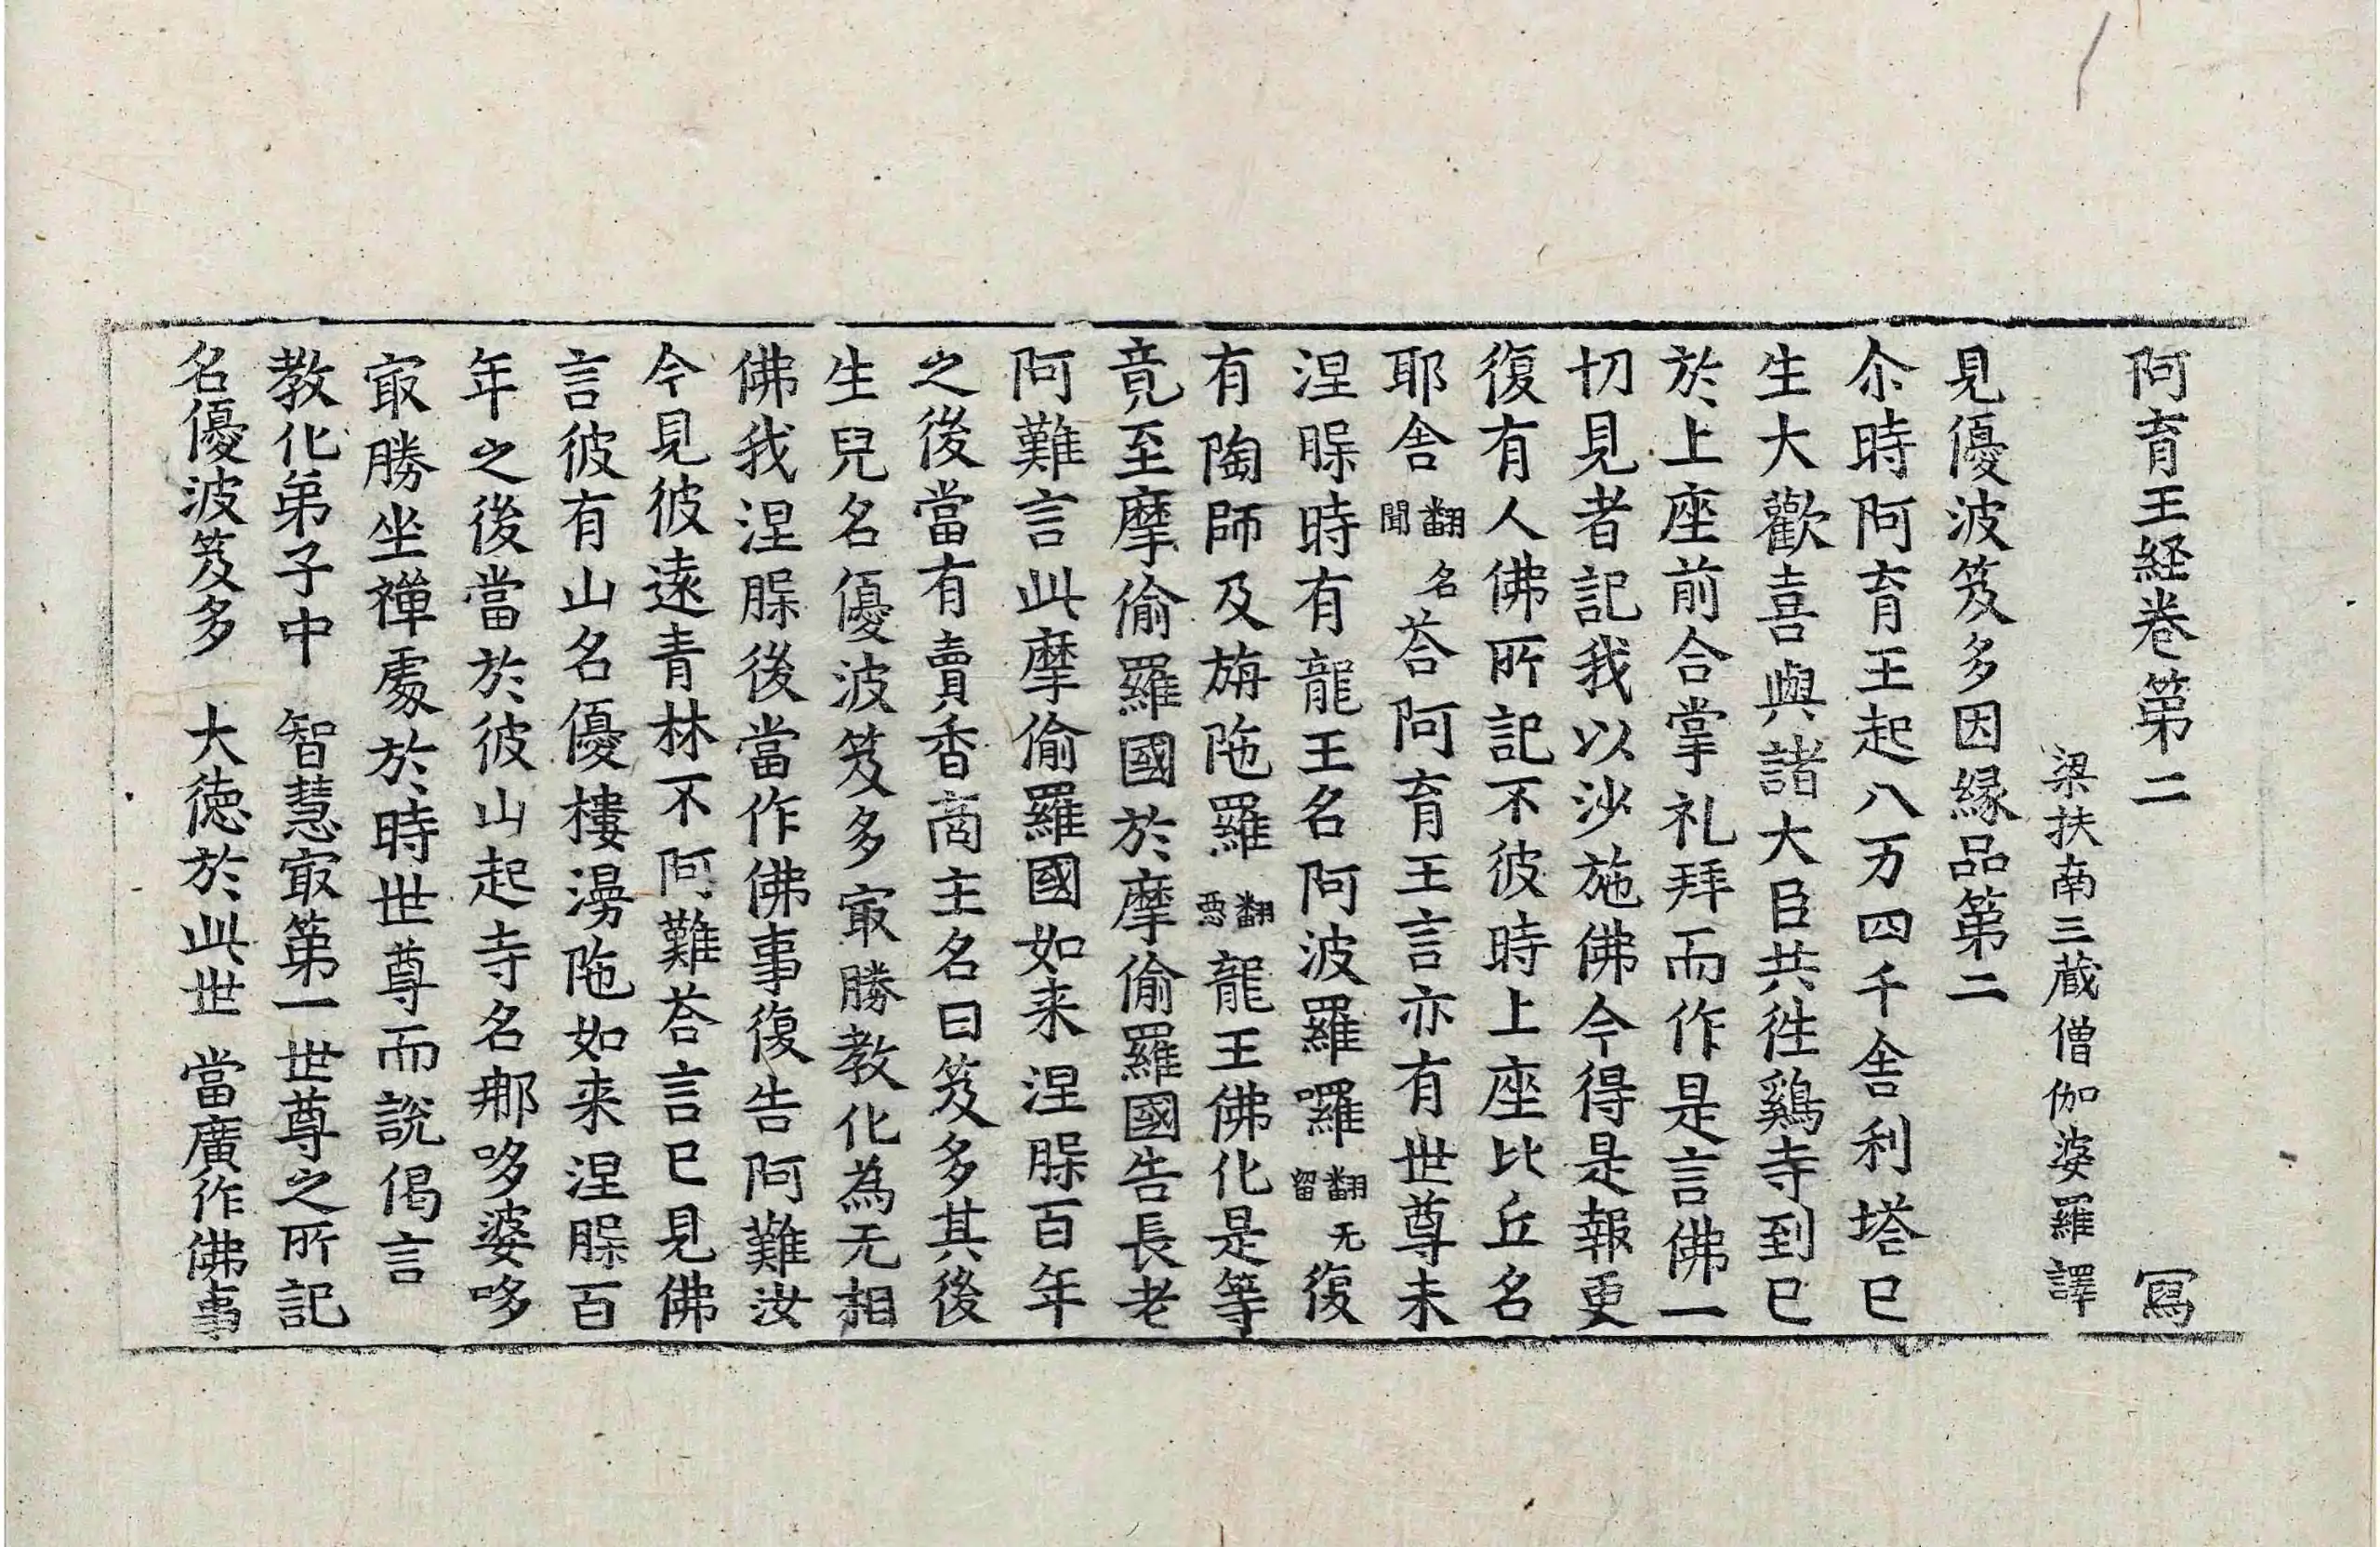 阿育王経卷第二 冩
梁扶南三蔵僧伽婆羅譯
見優波笈多因縁品第二
尒時阿育王起八万四千舎利塔已
生大歡喜與諸大臣共徃鷄寺到已
於上座前合掌礼拜而作是言佛一
切見者記我以沙施佛今得是報更
復有人佛所記不彼時上座比丘名
耶舎翻名聞荅阿育王言亦有世尊未
涅槃時有龍王名阿波羅囉翻无留復
有陶師及旃陁羅翻惡龍王佛化是等
竟至摩偷羅國於摩偷羅國告長老
阿難言此摩偷羅國如来涅槃百年
之後當有賣香商主名曰笈多其後
生兒名優波笈多冣勝教化為无相
佛我涅槃後當作佛事復告阿難汝
今見彼逺青林不阿難荅言已見佛
言彼有山名優樓漫陁如来涅槃百
年之後當於彼山起寺名那哆婆哆
冣勝坐禪處於時世尊而說偈言
教化弟子中 智慧冣第一 世尊之所記
名優波笈多 大徳於此世 當廣作佛事